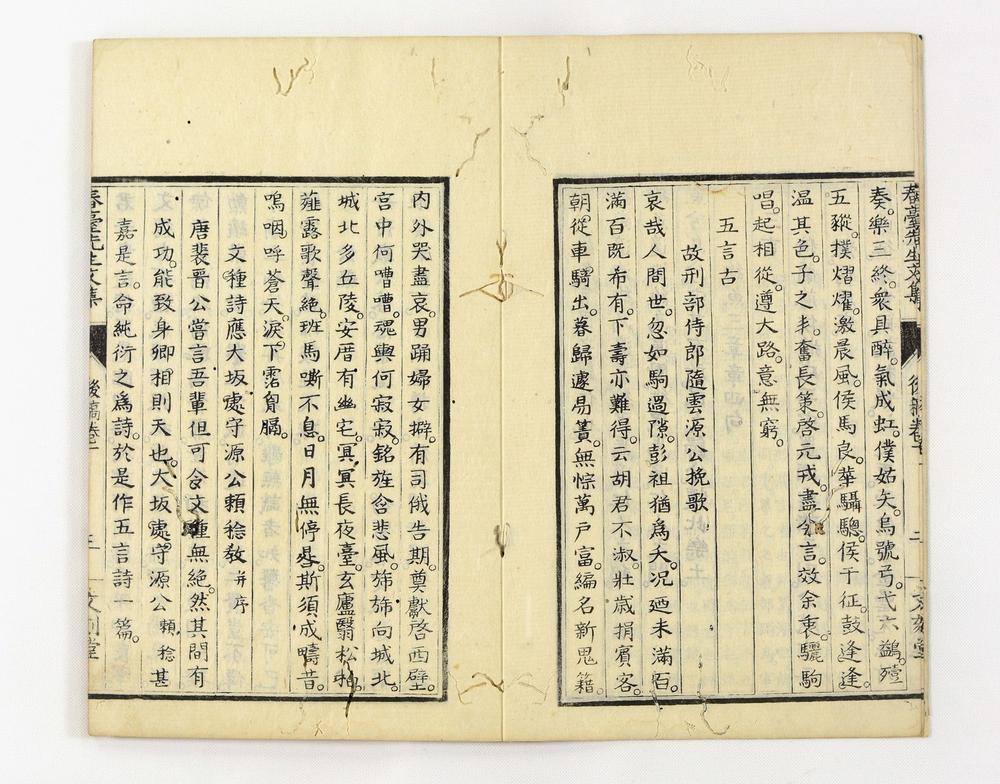 奏。樂三終。衆具醉。氣成虹。僕姑矢。烏號弓。弋六鷁。殪
五豵。撲熠燿。激晨風。侯馬良。華驑驄。侯于征。鼓逢逢。
温其色。子之丰。奮長策。啓元戎。盡今言。效余衷。驪駒
唱。起相從。遵大路。意無窮。
五言古
故刑部侍郎隨雲源公挽歌
哀哉人間世。忽如駒過隙。彭祖猶爲夭。况廼未滿百。
滿百既希有。下壽亦難得。云胡君不淑。壯歳捐賓客。
朝從車騎出。暮歸遽易簀。無悰萬戸富。編名新鬼籍。
内外哭盡哀。男踊婦女擗。有司俄告期。奠獻啓西壁。
宮中何嘈嘈。魂輿何寂寂。銘旌含悲風。斾斾向城北。
城北多丘陵。安厝有幽宅。冥冥長夜臺。玄廬翳松柏。
薤露歌聲絶。班馬嘶不息。日月無停晷。斯須成疇昔。
嗚咽呼蒼天。淚下霑胷膈。
文種詩應大坂處守源公賴稔敎并序
唐裴晋公嘗言吾輩但可令文種無絶。然其間有
成功。能致身卿相。則天也。大坂處守源公賴稔甚
嘉是言。命純衍之爲詩。於是作五言詩一篇。
春臺先生文集
後稿卷一